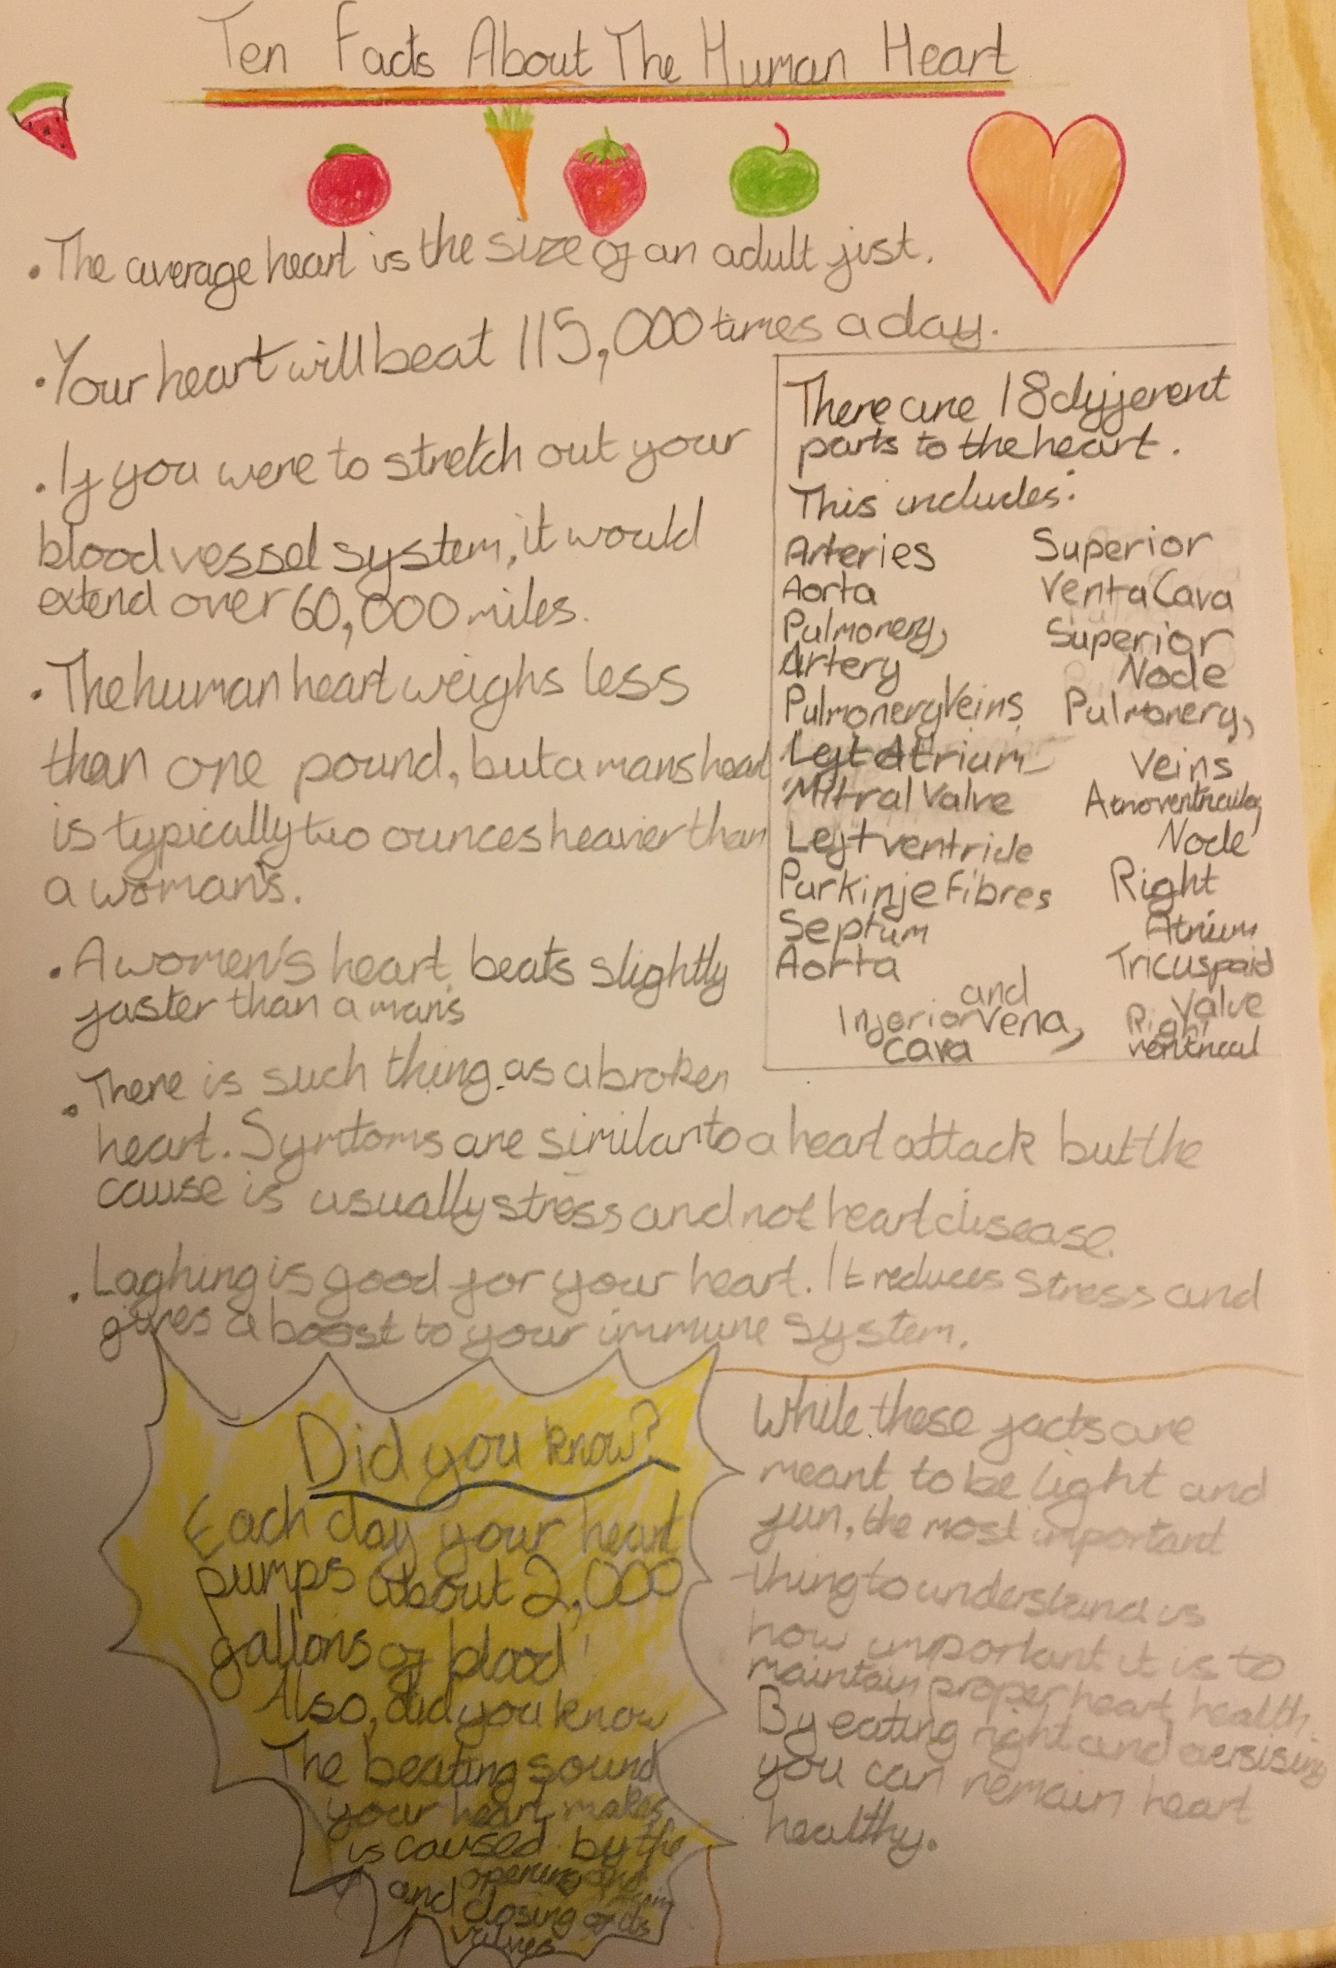 Ten Facts About The Human Heart
• The average heart is the size of an adult fist.
• Your heart will beat 115,000 times a day.
• If you were to stretch out your
blood vessel system, it would
extend over 60,000 miles.
• The human heart weighs less
than one pound, but a mans heart
is typically two ounces heavier than
a woman's.
• A women's heart beats slightly
faster than a man's
• There is such thing as a broken
heart. Symtoms are similar to a heart attack but the
cause is usually stress and not heart disease.
• Laghing is good for your heart. It reduces stress and
gives a boost to your immune system.
There are 18 different
parts to the heart.
This includes:
Arteries
Aorta
Pulmonery,
Artery
Pulmonery Veins
Left Atrium
Mitral Valve
Left ventricle
Purkinje Fibres
Septum
Aorta
and
Inferior vena,
cava
Superior
Venta Cava
Superior
Node
Pulmonery,
Veins
Node
Right
Atrium
Tricuspaid
Valve
Right
Did you know?
Each day your heart
pumps about 2,000
gallons of blood!
Also, did you know
The beating sound
your heart makes
is caused by the
opening and
and closing of its
valves
While these facts are
meant to be light and
fun, the most important
thing to understand is
how important it is to
maintain proper heart health.
By eating right and
you can remain heart
healthy.